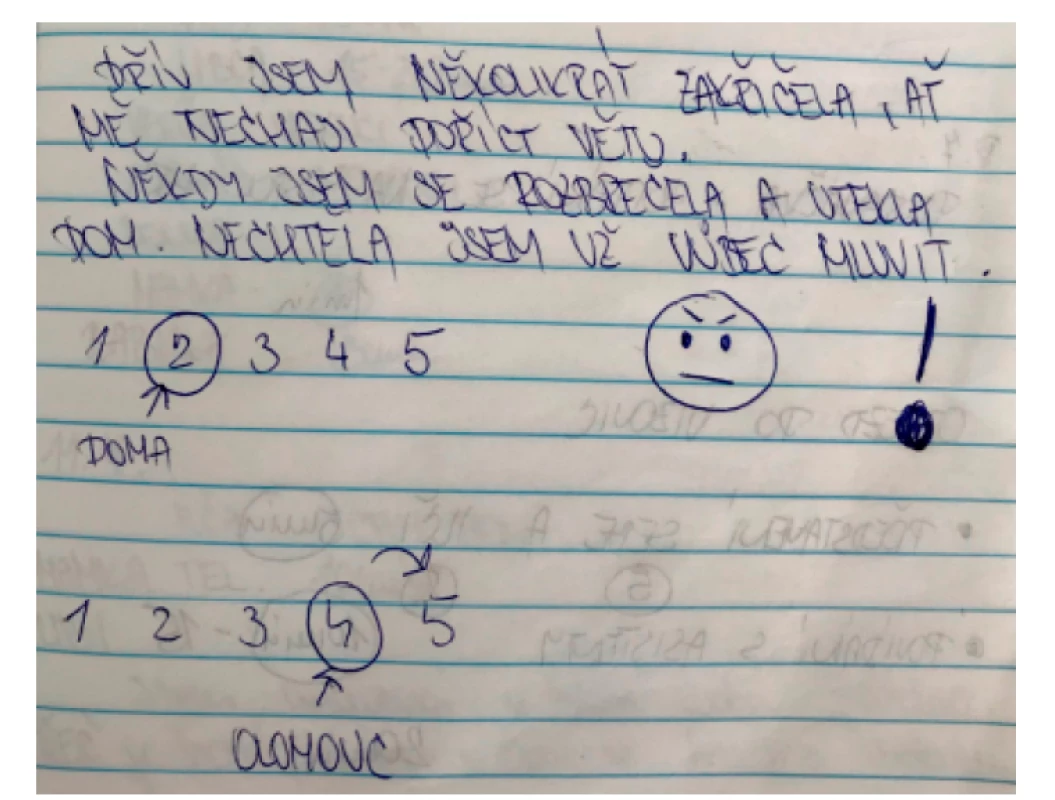 DŘÍV JSEM NĚKOLIKRÁT ZAKŘIČELA, AŤ
MĚ NECHAJÍ DOŘÍCT VĚTU.
NĚKDY JSEM SE ROZBREČELA A UTEKLA
DOM. NECHTĚLA JSEM UŽ VŮBEC MLUVIT.
1 2 3 4 5 !
DOMA
1 2 3 4 5
OLOMOUC